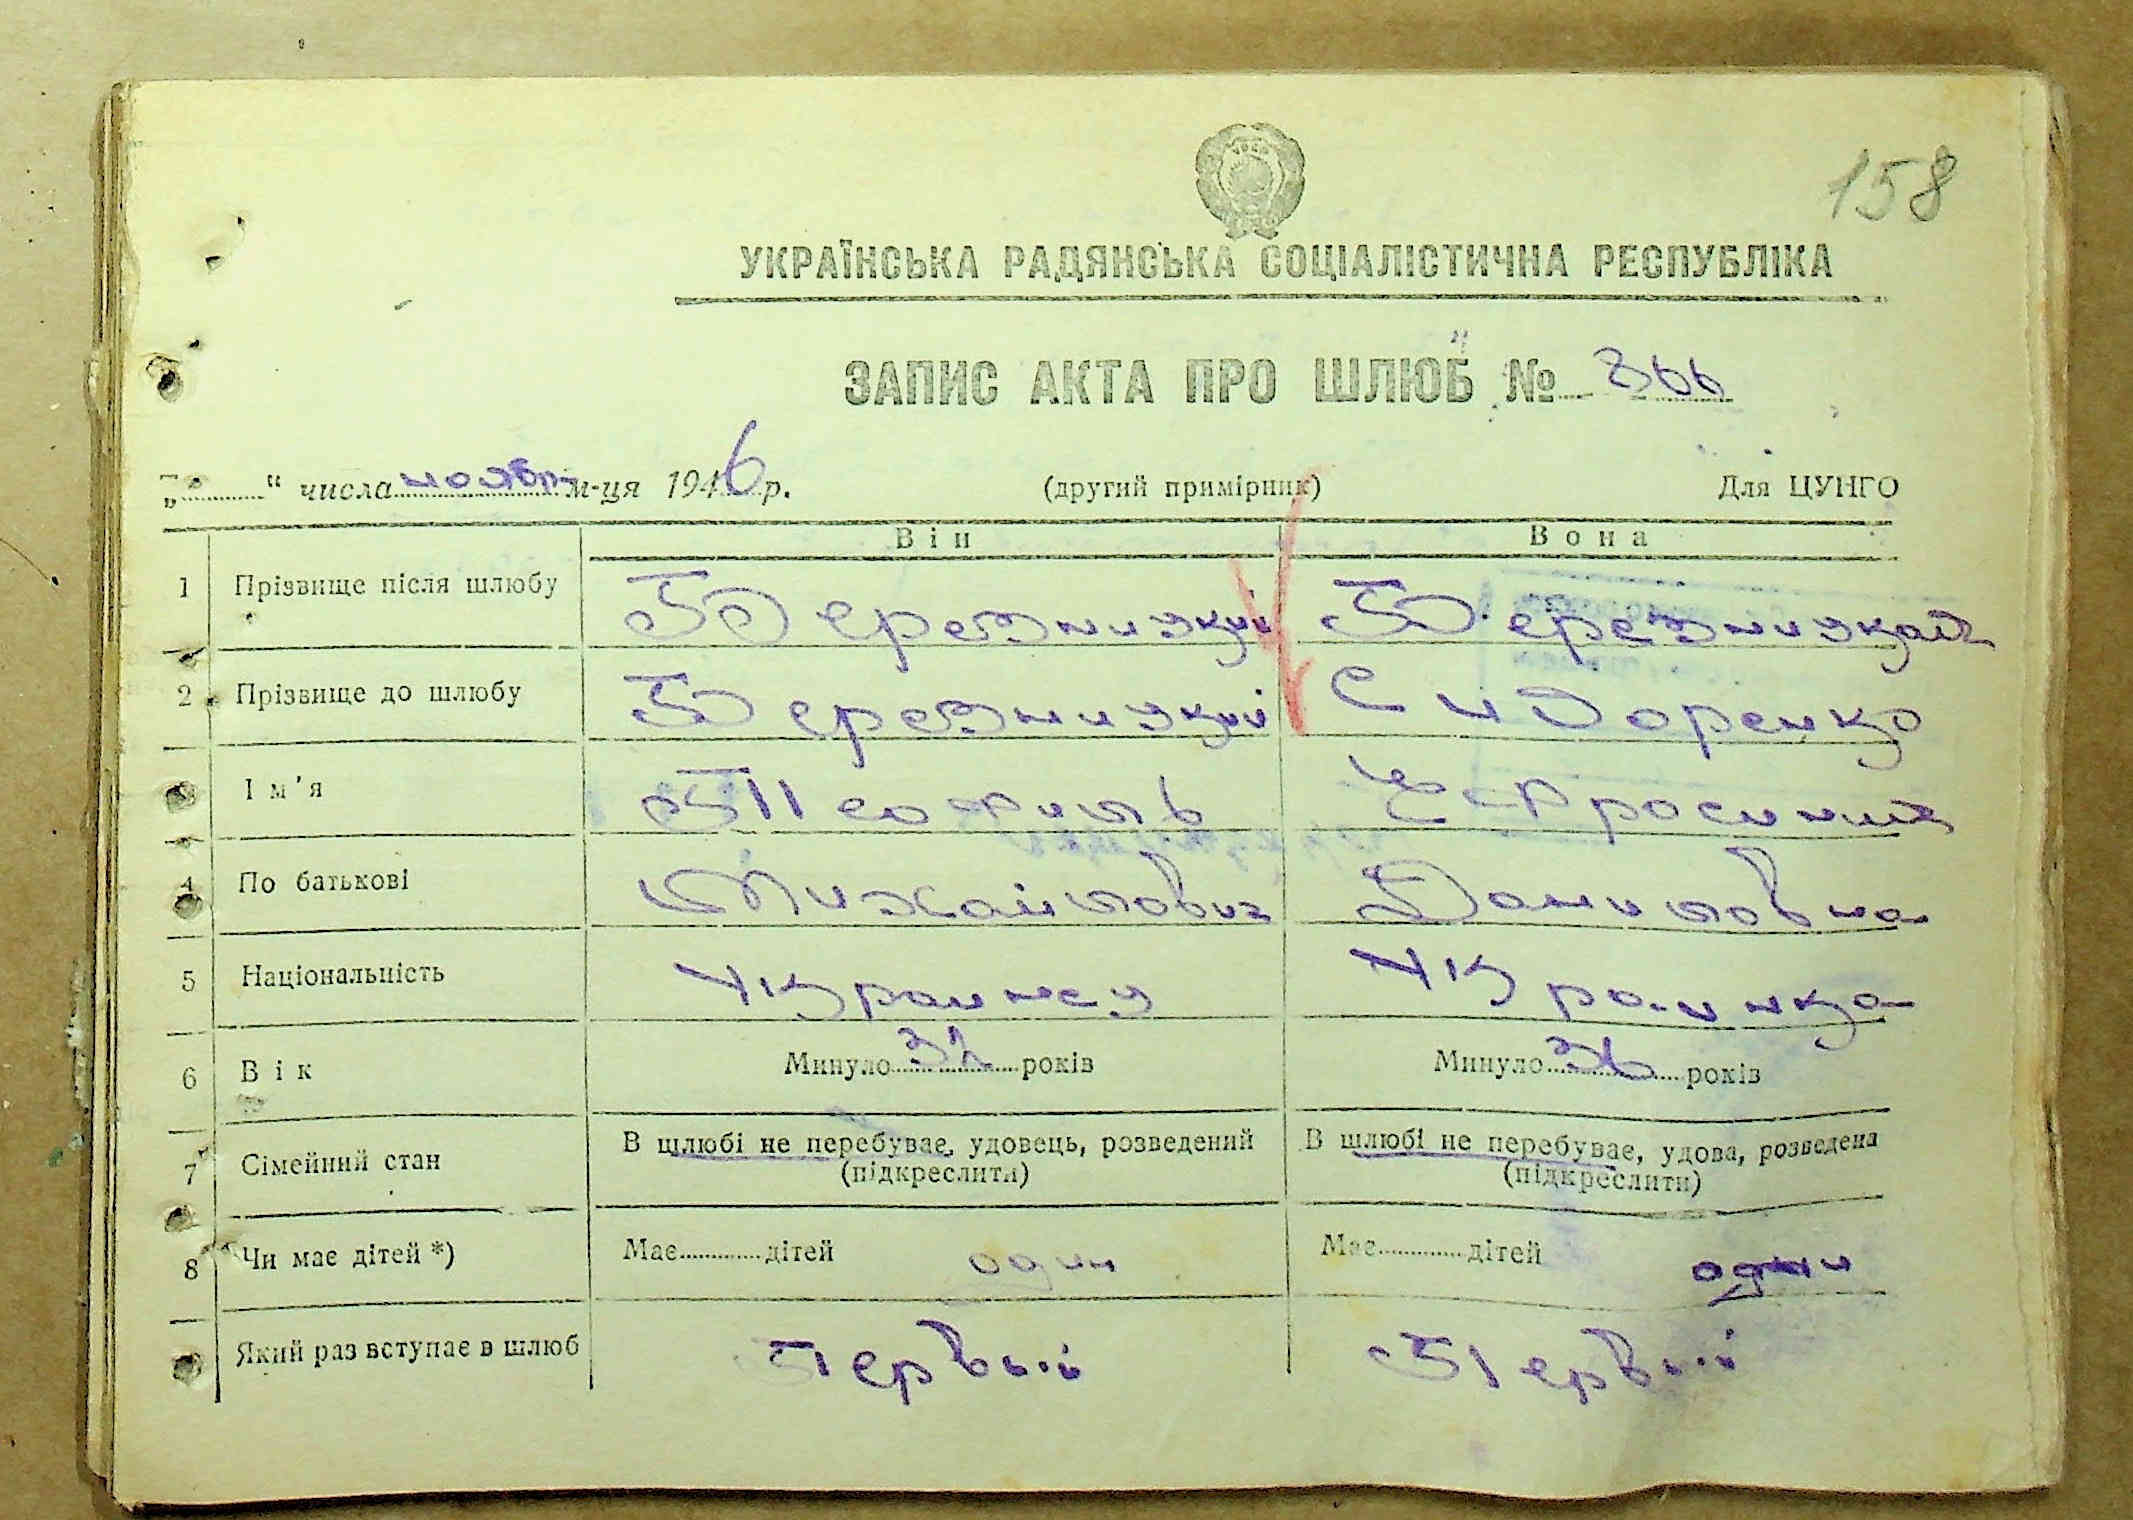 158
УКРАЇНСЬКА РАДЯНСЬКА СОЦІАЛІСТИЧНА РЕСПУБЛІКА
ЗАПИС АКТА ПРО ШЛЮБ № 866
„ “ числа ноября м-ця 1946 р. (другий примірник) Для ЦУНГО
Він Вона
1 Прізвище після шлюбу Березницкий Березницкая
2 Прізвище до шлюбу Березницкий Сидоренко
3 Ім'я Теофиль Ефросиния
4 По батькові Михайлович Даниловна
5 Національність Украинец Украинка
6 Вік Минуло 32 років Минуло 36 років
7 Сімейний стан В шлюбі не перебуває, удовець, розведений (підкреслити) В шлюбі не перебуває, удова, розведена (підкреслити)
8 Чи має дітей *) Має дітей один Має дітей один
Який раз вступає в шлюб Первый Первый